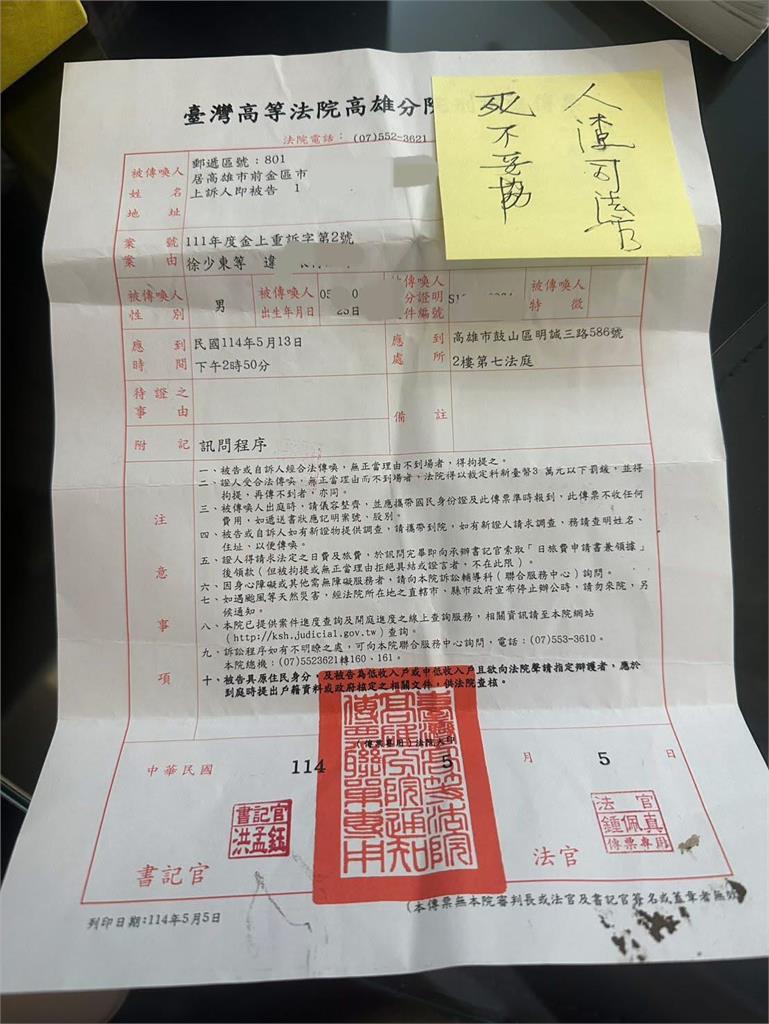 臺灣高等法院高雄分院
法院電話：(07)552-3621
人渣司法官
死不妥協
被傳喚人
姓名
地址
郵遞區號：801
居高雄市前金區市
上訴人即被告 1
案號
案由
111年度金上重訴字第2號
徐少東等 違
被傳喚人
性別
男
被傳喚人
出生年月日
傳喚人
分證明
件編號
被傳喚人
特徵
應到
時間
民國114年5月13日
下午2時50分
應到
處所
高雄市鼓山區明誠三路586號
2樓第七法庭
待證之
事由
備註
附記
訊問程序
注意事項
一、被告或自訴人經合法傳喚，無正當理由不到場者，得拘提之。
二、證人受合法傳喚，無正當理由而不到場者，法院得以裁定科新臺幣3 萬元以下罰鍰，並得
拘提，再傳不到者，亦同。
三、被傳喚人出庭時，請儀容整齊，並應攜帶國民身份證及此傳票準時報到，此傳票不收任何
費用，如遞送書狀應記明案號、股別。
四、被告或自訴人如有新證物提供調查，請攜帶到院，如有新證人請求調查，務請查明姓名、
住址、以便傳喚。
五、證人得請求法定之日費及旅費，於訊問完畢即向承辦書記官索取「日旅費申請書兼領據」
後領款(但被拘提或無正當理由拒絕具結或證言者，不在此限)。
六、因身心障礙或其他需無障礙服務者，請向本院訴訟輔導科(聯合服務中心)詢問。
七、如遇颱風等天然災害，經法院所在地之直轄市、縣市政府宣布停止辦公時，請勿來院，另
候通知。
八、本院已提供案件進度查詢及開庭進度之線上查詢服務，相關資訊請至本院網站
(http://ksh.judicial.gov.tw)查詢。
九、訴訟程序如有不明瞭之處，可向本院聯合服務中心詢問，電話：(07)553-3610。
本院總機：(07)5523621轉160、161。
十、被告具原住民身分，及被告為低收入戶或中低收入戶且欲向法院聲請指定辯護者，應於
到庭時提出戶籍資料或政府核定之相關文件，供法院查核。
臺灣高等法院
高雄分院通知
傳票聯單專用
中華民國 114 5 月 5 日
書記官
書記官
洪孟鈺
法官
法官
鍾佩真
傳票專用
(本傳票無本院審判長或法官及書記官簽名或蓋章者無效
列印日期:114年5月5日